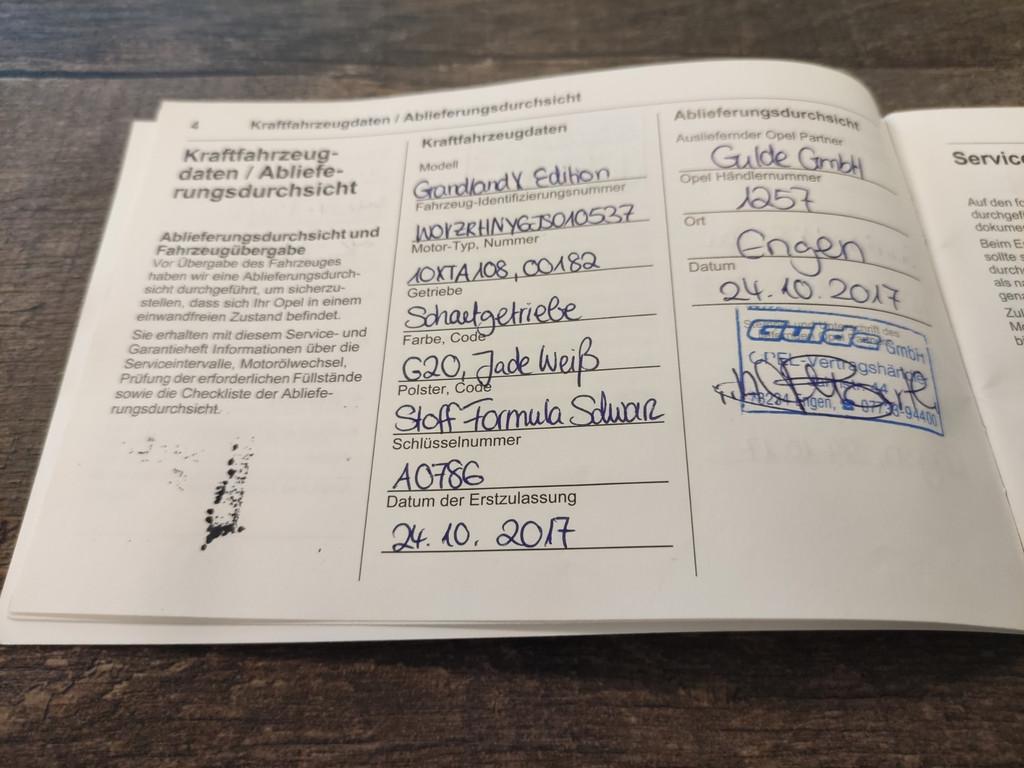 4
Kraftfahrzeugdaten / Ablieferungsdurchsicht
Kraftfahrzeug-
daten / Abliefe-
rungsdurchsicht
Ablieferungsdurchsicht und
Fahrzeugübergabe
Vor Übergabe des Fahrzeuges
haben wir eine Ablieferungsdurch-
sicht durchgeführt, um sicherzu-
stellen, dass sich Ihr Opel in einem
einwandfreien Zustand befindet.
Sie erhalten mit diesem Service- und
Garantieheft Informationen über die
Serviceintervalle, Motorölwechsel,
Prüfung der erforderlichen Füllstände
sowie die Checkliste der Abliefe-
rungsdurchsicht.
Kraftfahrzeugdaten
Modell
Grandland X Edition
Fahrzeug-Identifizierungsnummer
W0VZRHNYGJS010537
Motor-Typ, Nummer
10XTA108, 00182
Getriebe
Schaltgetriebe
Farbe, Code
G20, Jade Weiß
Polster, Code
Stoff Formula Schwarz
Schlüsselnummer
A0786
Datum der Erstzulassung
24. 10. 2017
Ablieferungsdurchsicht
Ausliefernder Opel Partner
Gulde GmbH
Opel Händlernummer
1257
Ort
Engen
Datum
24.10.2017
Gulde GmbH
OPEL-Vertragshändler
78234 Engen, ☎ 07733-94400
Service
Auf den fo
durchgefü
dokume
Beim Es
sollte s
durch
als na
gena
Zu
M
b